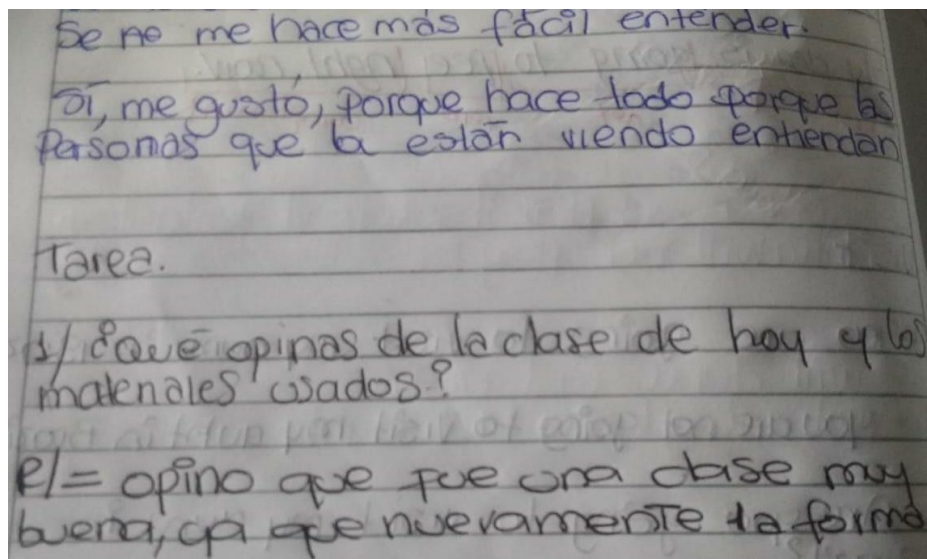 Se ne me hace más fácil entender.
Sí, me gustó, porque hace todo porque las
Personas que la están viendo entiendan
Tarea.
1/ ¿Qué opinas de la clase de hoy y los
materiales usados?
R/= opino que fue una clase muy
buena, ya que nuevamente la forma